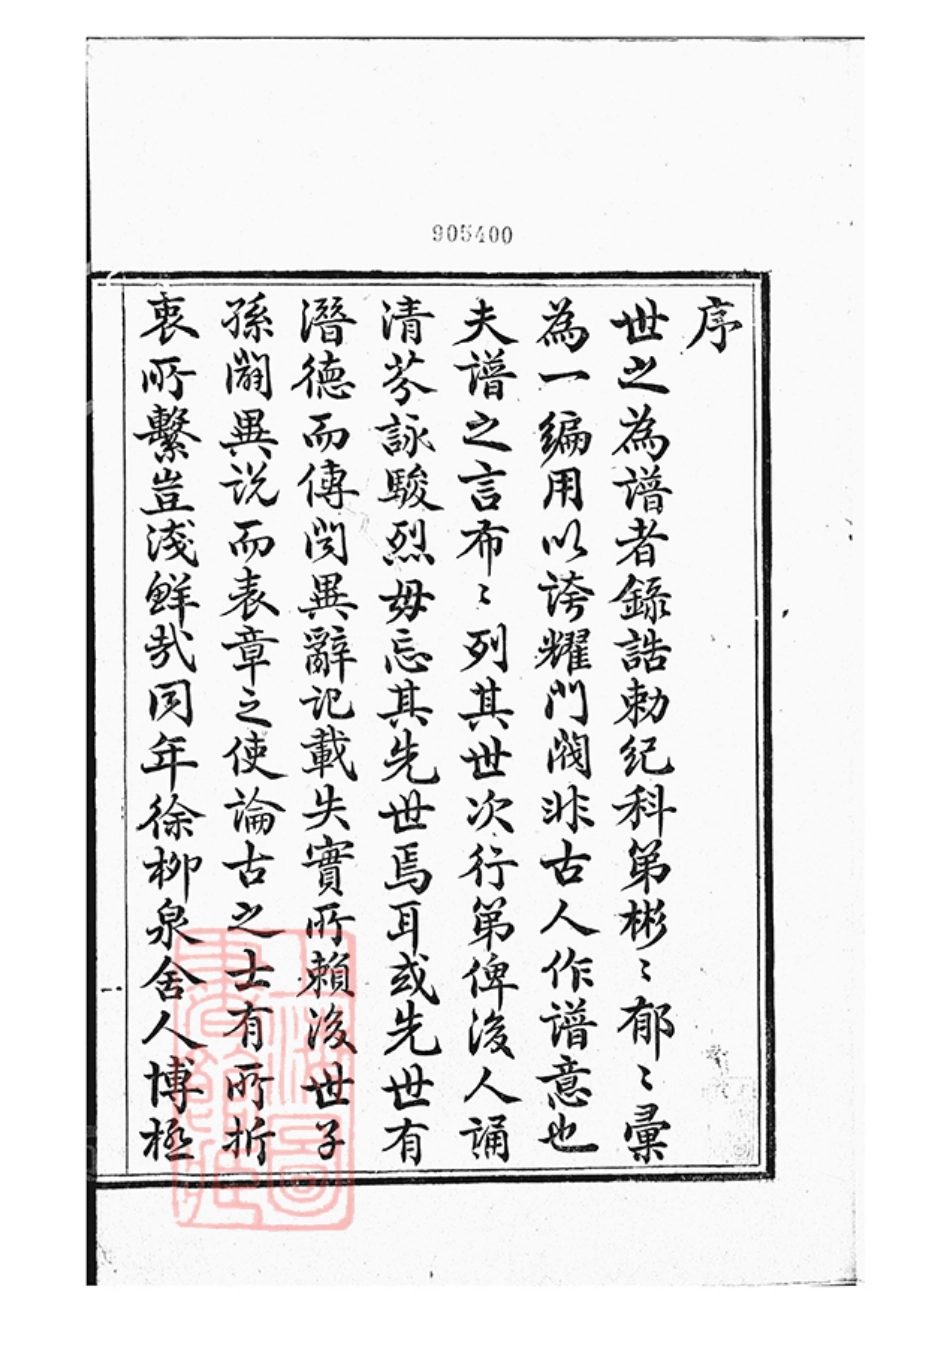 905400
序
世之為譜者錄誥勅紀科第彬〻郁〻彙
為一編用以誇耀門閥非古人作譜意也
夫譜之言布〻列其世次行第俾後人誦
清芬詠駿烈毋忘其先世焉耳或先世有
潛德而傳聞異辭記載失實所賴後世子
孫闢異说而表章之使論古之士有所折
衷所繫豈淺鮮哉同年徐柳泉舍人博極
上海圖書館藏